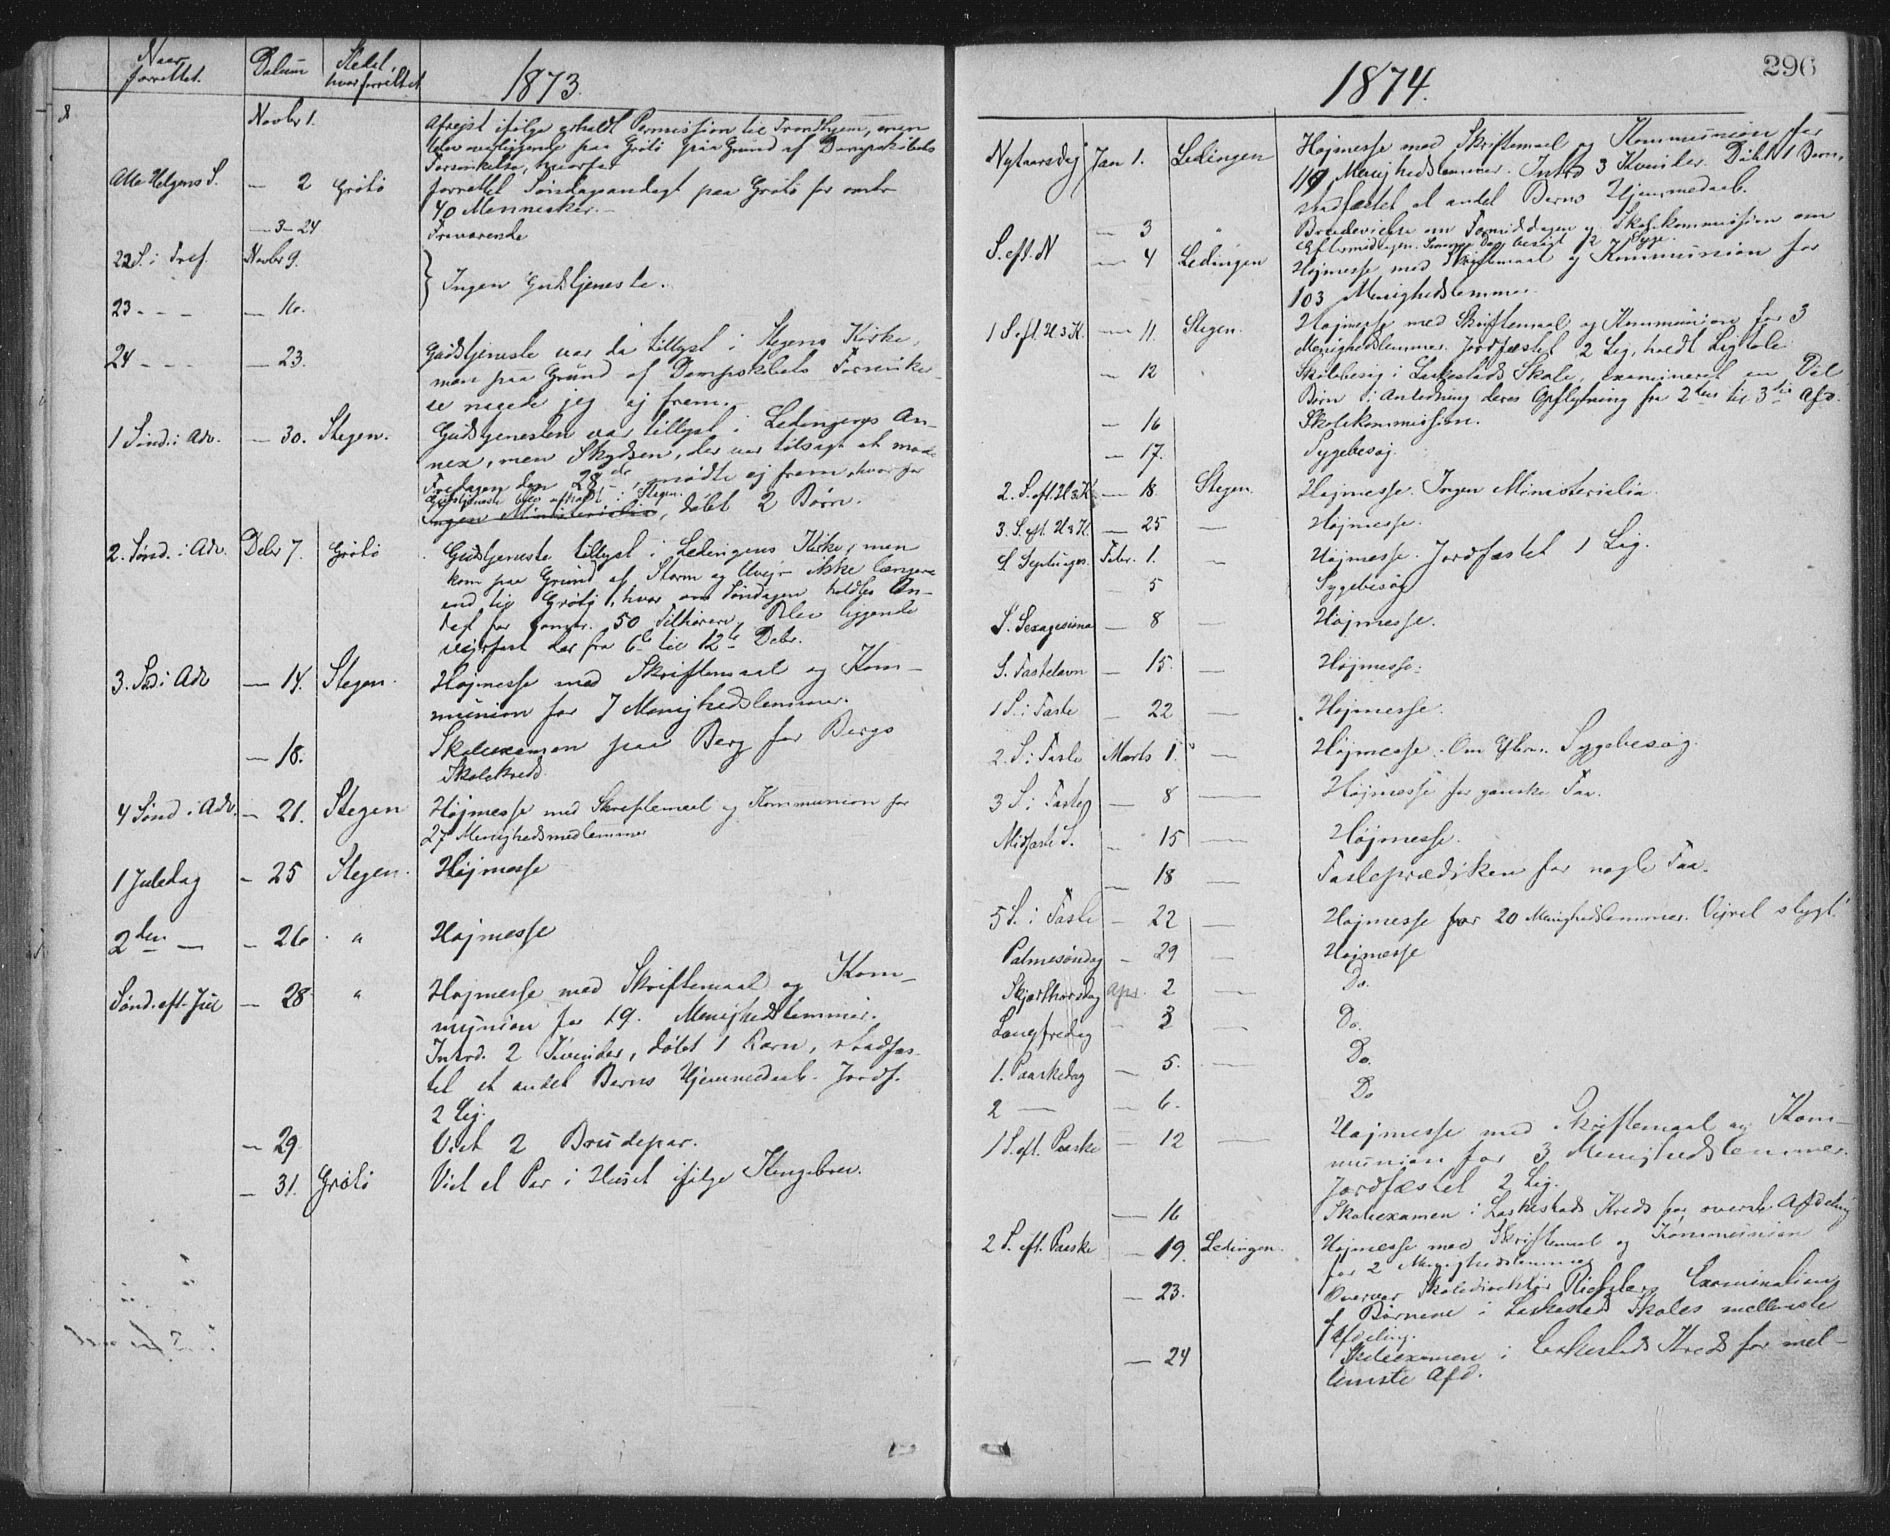 Naar forrettet. Datum Stedet, hvor forrettet 1873.
Novbr 1. Afrejst ifølge erholdt Permission til Trondhjem, men
blev overliggende paa Grøtø paa Grund af Dampskibets
Forsinkelse, hvorfor
Alle Helgens S. — 2 Grøtø forrettet Søndagsandagt paa Grøtø for omtr
40 Mennesker.—
— 3–24 Fraværende
22 S. i Tref. Novbr 9.
Ingen Gudstjeneste.
23 - - - — 16.
24 - - - — 23. Gudstjeneste var da tillyst i Stegens Kirke,
men paa Grund af Dampskibets Forsinkel-
se naaede jeg ej frem.—
1 Sønd. i Adv. — 30. Stegen. Gudstjenesten var tillyst i Ledingens An-
nex, men Skydsen, der var tilsagt at møde
Fredagen den 28de, mødte ej frem, hvorfor
Gudstjeneste blev afholdt i Stegen.
Ingen Ministerialia, døbt 2 Børn.
2. Sønd. i Adv. Debr 7. Grøtø Gudstjeneste tillyst i Ledingens Kirke, men
kom paa Grund af Storm og Uvejr ikke længere
end til Grøtø, hvor om Søndagen holdtes An-
dagt for omtr. 50 Tilhørere. Blev liggende
vejrfast der fra 6te til 12te Debr.
3. Sød. i Adv — 14. Stegen. Højmesse med Skriftemaal og Kom-
munion for 7 Menighedslemmer.
— 18. Skoleexamen paa Berg for Bergs
Skolekreds.
4 Sønd. i Adv. — 21. Stegen Højmesse med Skriftemaal og Kommunion for
27 Menighedsmedlemmer
1 Juledag — 25 Stegen. Højmesse
2den — — 26 " Højmesse
Sønd. eft. Jul — 28 " Højmesse med Skriftemaal og Kom-
munion for 19. Menighedslemmer.
Introd. 2 Kvinder, døbt 1 Barn, stadfæs-
tet et andet Barns Hjemmedaab. Jordf.
2 Lig.
— 29 Viet 2 Brudepar.
— 31. Grøtø Viet et Par i Huset ifølge Kongebrev.
1874. 296
Nytaarsdag Jan 1. Ledingen Højmesse med Skriftemaal og Kommunion for
119 Menighedslemmer. Introd 3 Kvinder. Døbt 1 Barn,
stadfæstet et andet Barns Hjemmedaab.
— 3 " Brudevielse om Formiddagen og Skolekommission om
Eftermiddagen. Samme Dag besøgt 2 Syge.
S. eft. N — 4 Ledingen Højmesse med Skriftemaal og Kommunion for
103 Menighedslemmer.
1 S. eft. H 3 K. — 11. Stegen. Højmesse med Skriftemaal og Kommunion for 3
Menighedslemmer. Jordfæstet 2 Lig, holdt Ligtale
— 12 Skolebesøg i Laskestads Skole, examineret en Del
Børn i Anledning deres Opflytning fra 2den til 3die Afd.
— 16 Skolekommission.
— 17. Sygebesøg.
2. S. eft. H 3 K — 18. Stegen. Højmesse. Ingen Ministerialia.
3. S. eft. H 3 K. — 25 — Højmesse.
S. Septuages. Febr. 1. — Højmesse. Jordfæstet 1 Lig.
— 5 Sygebesøg
S. Sexagesima — 8 — Højmesse.
S. Fastelavn — 15. — Højmesse.
1 S. i Faste — 22 — Højmesse.
2. S. i Faste Marts 1. — Højmesse. Om Efterm. Sygebesøg.
3 S. i Faste — 8 — Højmesse for ganske Faa.
Midfaste S. — 15 — Højmesse.
— 18 — Fasteprædiken for nogle Faa.
5 S. i Faste — 22 — Højmesse for 20 Menighedslemmer. Vejret stygt.
Palmesøndag — 29 — Højmesse
Skjærthorsdag Apr. 2 — Do.
Langfredag — 3 — Do.
1. Paaskedag — 5. — Do.
2 — — 6. Do
1 S. eft. Paaske — 12 — Højmesse med Skriftemaal og Kom-
munion for 3 Menighedslemmer.
Jordfæstet 2 Lig.
— 16 Skoleexamen i Laskestads Kreds for øverste Afdeling
2 S. eft. Paaske — 19. Ledingen. Højmesse med Skriftemaal og Kommunion
for 2 Menighedslemmer
— 23. Overvar Skoledirektør Richters Examination
af Børnene i Laskestad Skoles mellemste
Afdeling.
— 24 Skoleexamen i Laskestads Kreds for mel-
lemste Afd.